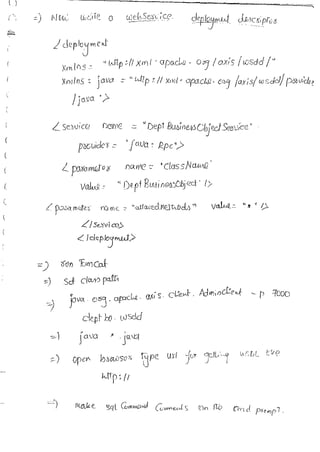 =) Now write a webservice deployment descriptor
< deployment
xmlns = "http://xml.apache.org/axis/wsdd/"
xmlns : java = "http://xml.apache.org/axis/wsdd/provider
/java ">
< service name = "DeptBusinessObjectService"
provider = "java: Rpc">
< parameter name = "ClassName"
value = "DeptBusinessObject" />
< parameter name = "allowedmethods" value = "*" />
</services>
</deployment>
=) run TomCat
=) Set class path
=) java. org. apache. axis. client. AdminClient - p 7000
dept bo. wsdd
=) java *.java
=) open browser type url for getting
http://
=) Make sql Command